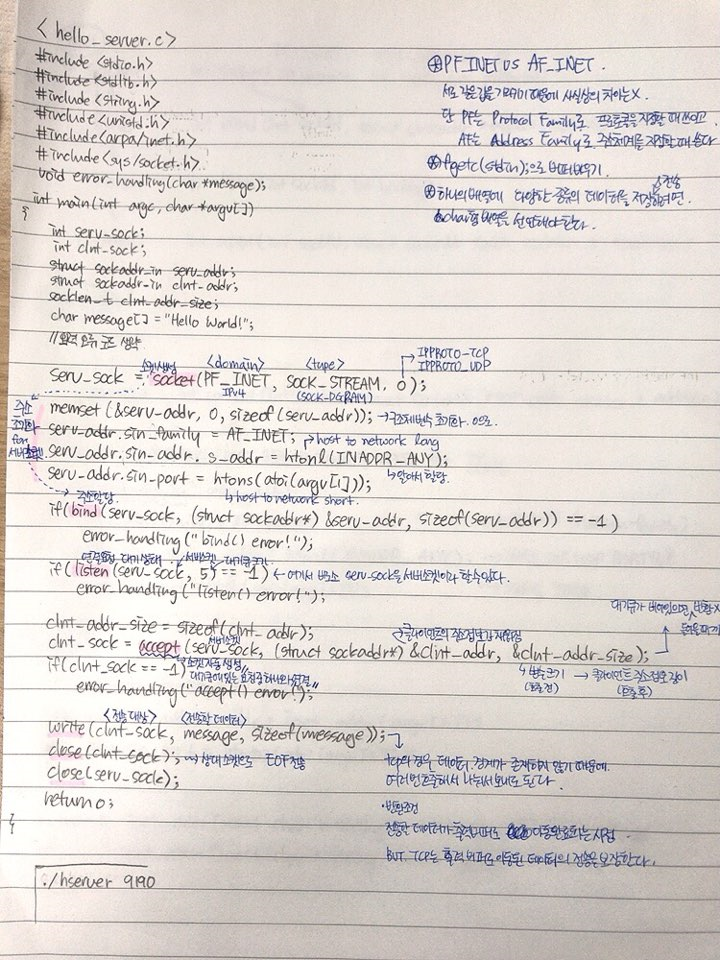 < hello_server.c >
#include <stdio.h>
#include <stdlib.h>
#include <string.h>
#include <unistd.h>
#include <arpa/inet.h>
#include <sys/socket.h>
void error_handling(char *message);
int main(int argc, char *argv[])
{
int serv_sock;
int clnt_sock;
struct sockaddr_in serv_addr;
struct sockaddr_in clnt_addr;
socklen_t clnt_addr_size;
char message[] = "Hello World!";
//입력 오류 코드 생략
소켓생성 <domain> <type> IPPROTO_TCP
IPPROTO_UDP
serv_sock = socket(PF_INET, SOCK_STREAM, 0);
IPv4 (SOCK_DGRAM)
주소
초기화
for
서버소켓
memset (&serv_addr, 0, sizeof(serv_addr)); → 구조체변수 초기화. 0으로.
serv_addr.sin_family = AF_INET; host to network long
serv_addr.sin_addr. s_addr = htonl(INADDR_ANY);
serv_addr.sin_port = htons(atoi(argv[1])); 알아서 할당.
주소할당 host to network short.
if(bind(serv_sock, (struct sockaddr*) &serv_addr, sizeof(serv_addr)) == -1)
error_handling("bind() error!");
연결요청 대기상태 서버소켓 대기큐 크기
if(listen(serv_sock, 5) == -1) ← 여기서 변수 serv_sock을 서버소켓이라 할 수 있다.
error_handling("listen() error!");
clnt_addr_size = sizeof(clnt_addr);
서버소켓 클라이언트의 주소정보가 채워짐
clnt_sock = accept(serv_sock, (struct sockaddr*) &clnt_addr, &clnt_addr_size);
대기큐가 비어있으면, 반환X
if(clnt_sock == -1) "소켓 자동 생성
대기큐에 있는 요청중 하나와 연결"
error_handling("accept() error!");
변수크기 → 클라이언트 주소정보 길이
(호출 전) (호출 후)
<전송 대상> <전송할 데이터>
write(clnt_sock, message, sizeof(message));
close(clnt_sock); → 상대소켓으로 EOF전송
close(serv_sock);
return 0;
}
./hserver 9190
⊛ PF_INET vs AF_INET.
서로 같은 값을 가지기 때문에 사실상의 차이는 X.
단 PF는 Protocol Family로 프로토콜을 지정할 때 쓰이고
AF는 Address Family로 주소체계를 지정할 때 쓴다
⊛ fgetc(stdin);으로 버퍼비우기.
⊛ 하나의 배열에 다양한 종류의 데이터를 저장하려면 & 전송
char형 배열을 선언해야 한다.
tcp의 경우, 데이터 경계가 존재하지 않기 때문에.
여러번 호출해서 나눠서 보내도 된다.
• 반환조건
전송할 데이터가 출력버퍼로 이동 완료되는 시점.
BUT. TCP는 출력 버퍼로 이동된 데이터의 전송을 보장한다.